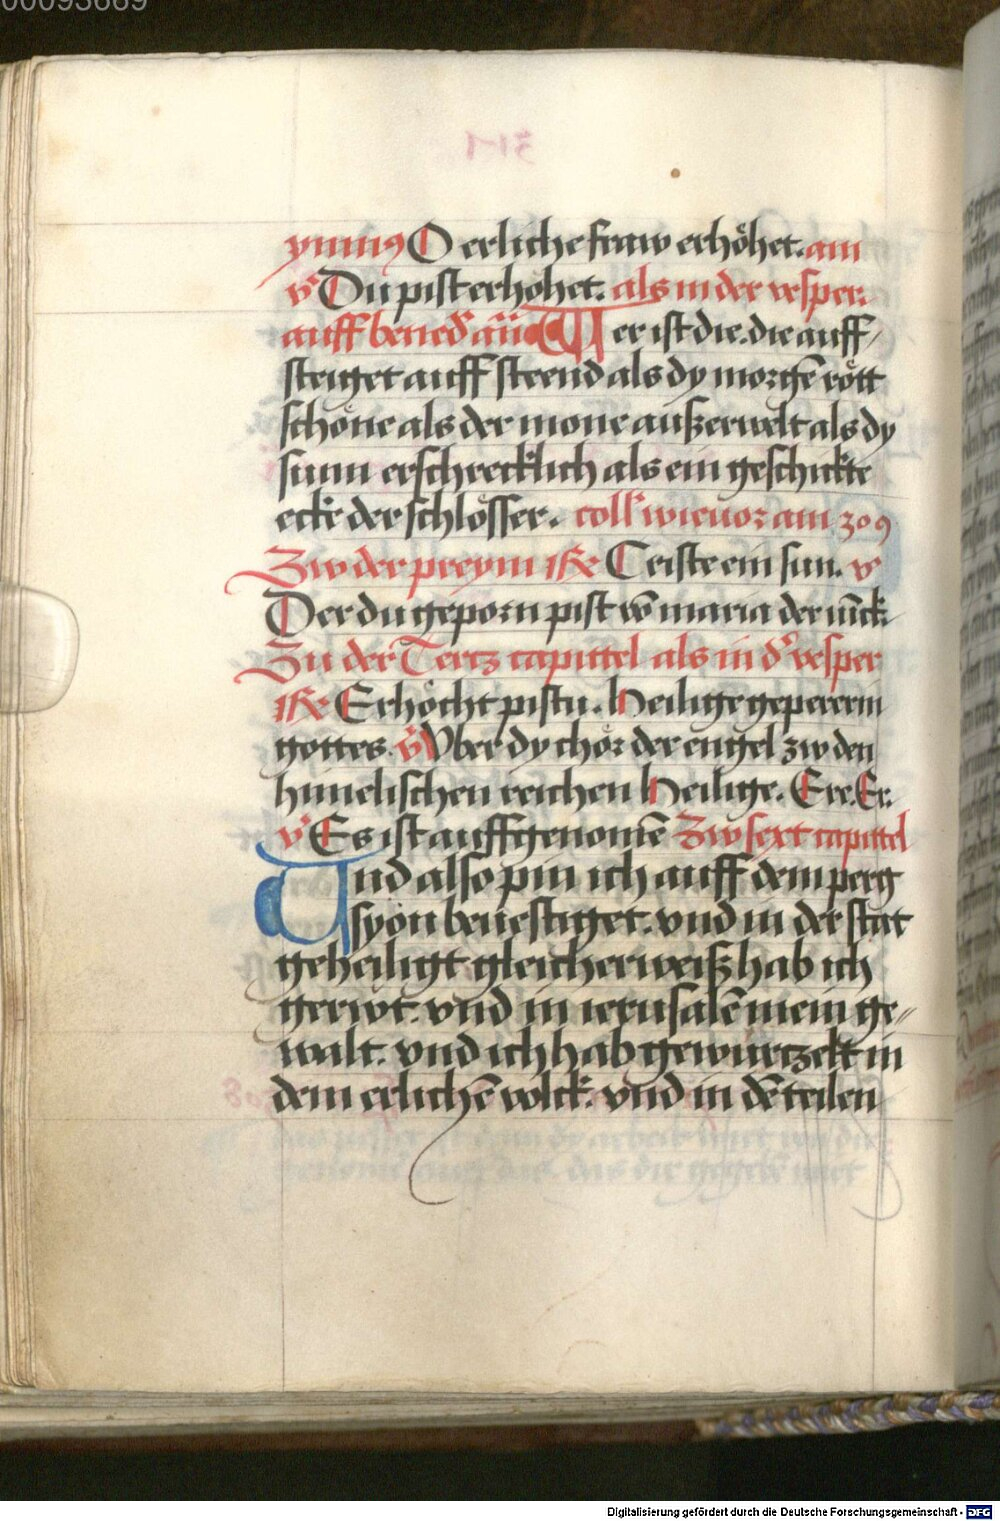 00093669
ymn9 O erliche fraw erhöhet. am
v° Du pist erhohet. als in der vesper.
auff bened° añ Wer ist die. die auff/
steiget auff steend als dy morgē rött
schöne als der mone außerwelt als dy
sunn erschrecklich als ein geschickte
ecke der schlösser. coll° wie uor am 309
Zw der preym Criste ein sun. v°
Der du geporn pist vō maria der iūck
Zu der Tertz capittel als in d° vesper
Erhöcht pistu. heilige gepererin
gottes. v° Vber dy chör der engel zw den
himelischen reichen heilige. Ere. Er.
v° Es ist auffgenomē Zw sext capittel
Und also pin ich auff dem perg
syon beuestiget. vnd in der stat
geheiligt gleicherweiß hab ich
gerwt. vnd in ierusalē mein ge//
walt. vnd ich hab gewurczelt in
dem erlichē volck. vnd in dē teilen
Digitalisierung gefördert durch die Deutsche Forschungsgemeinschaft - DFG